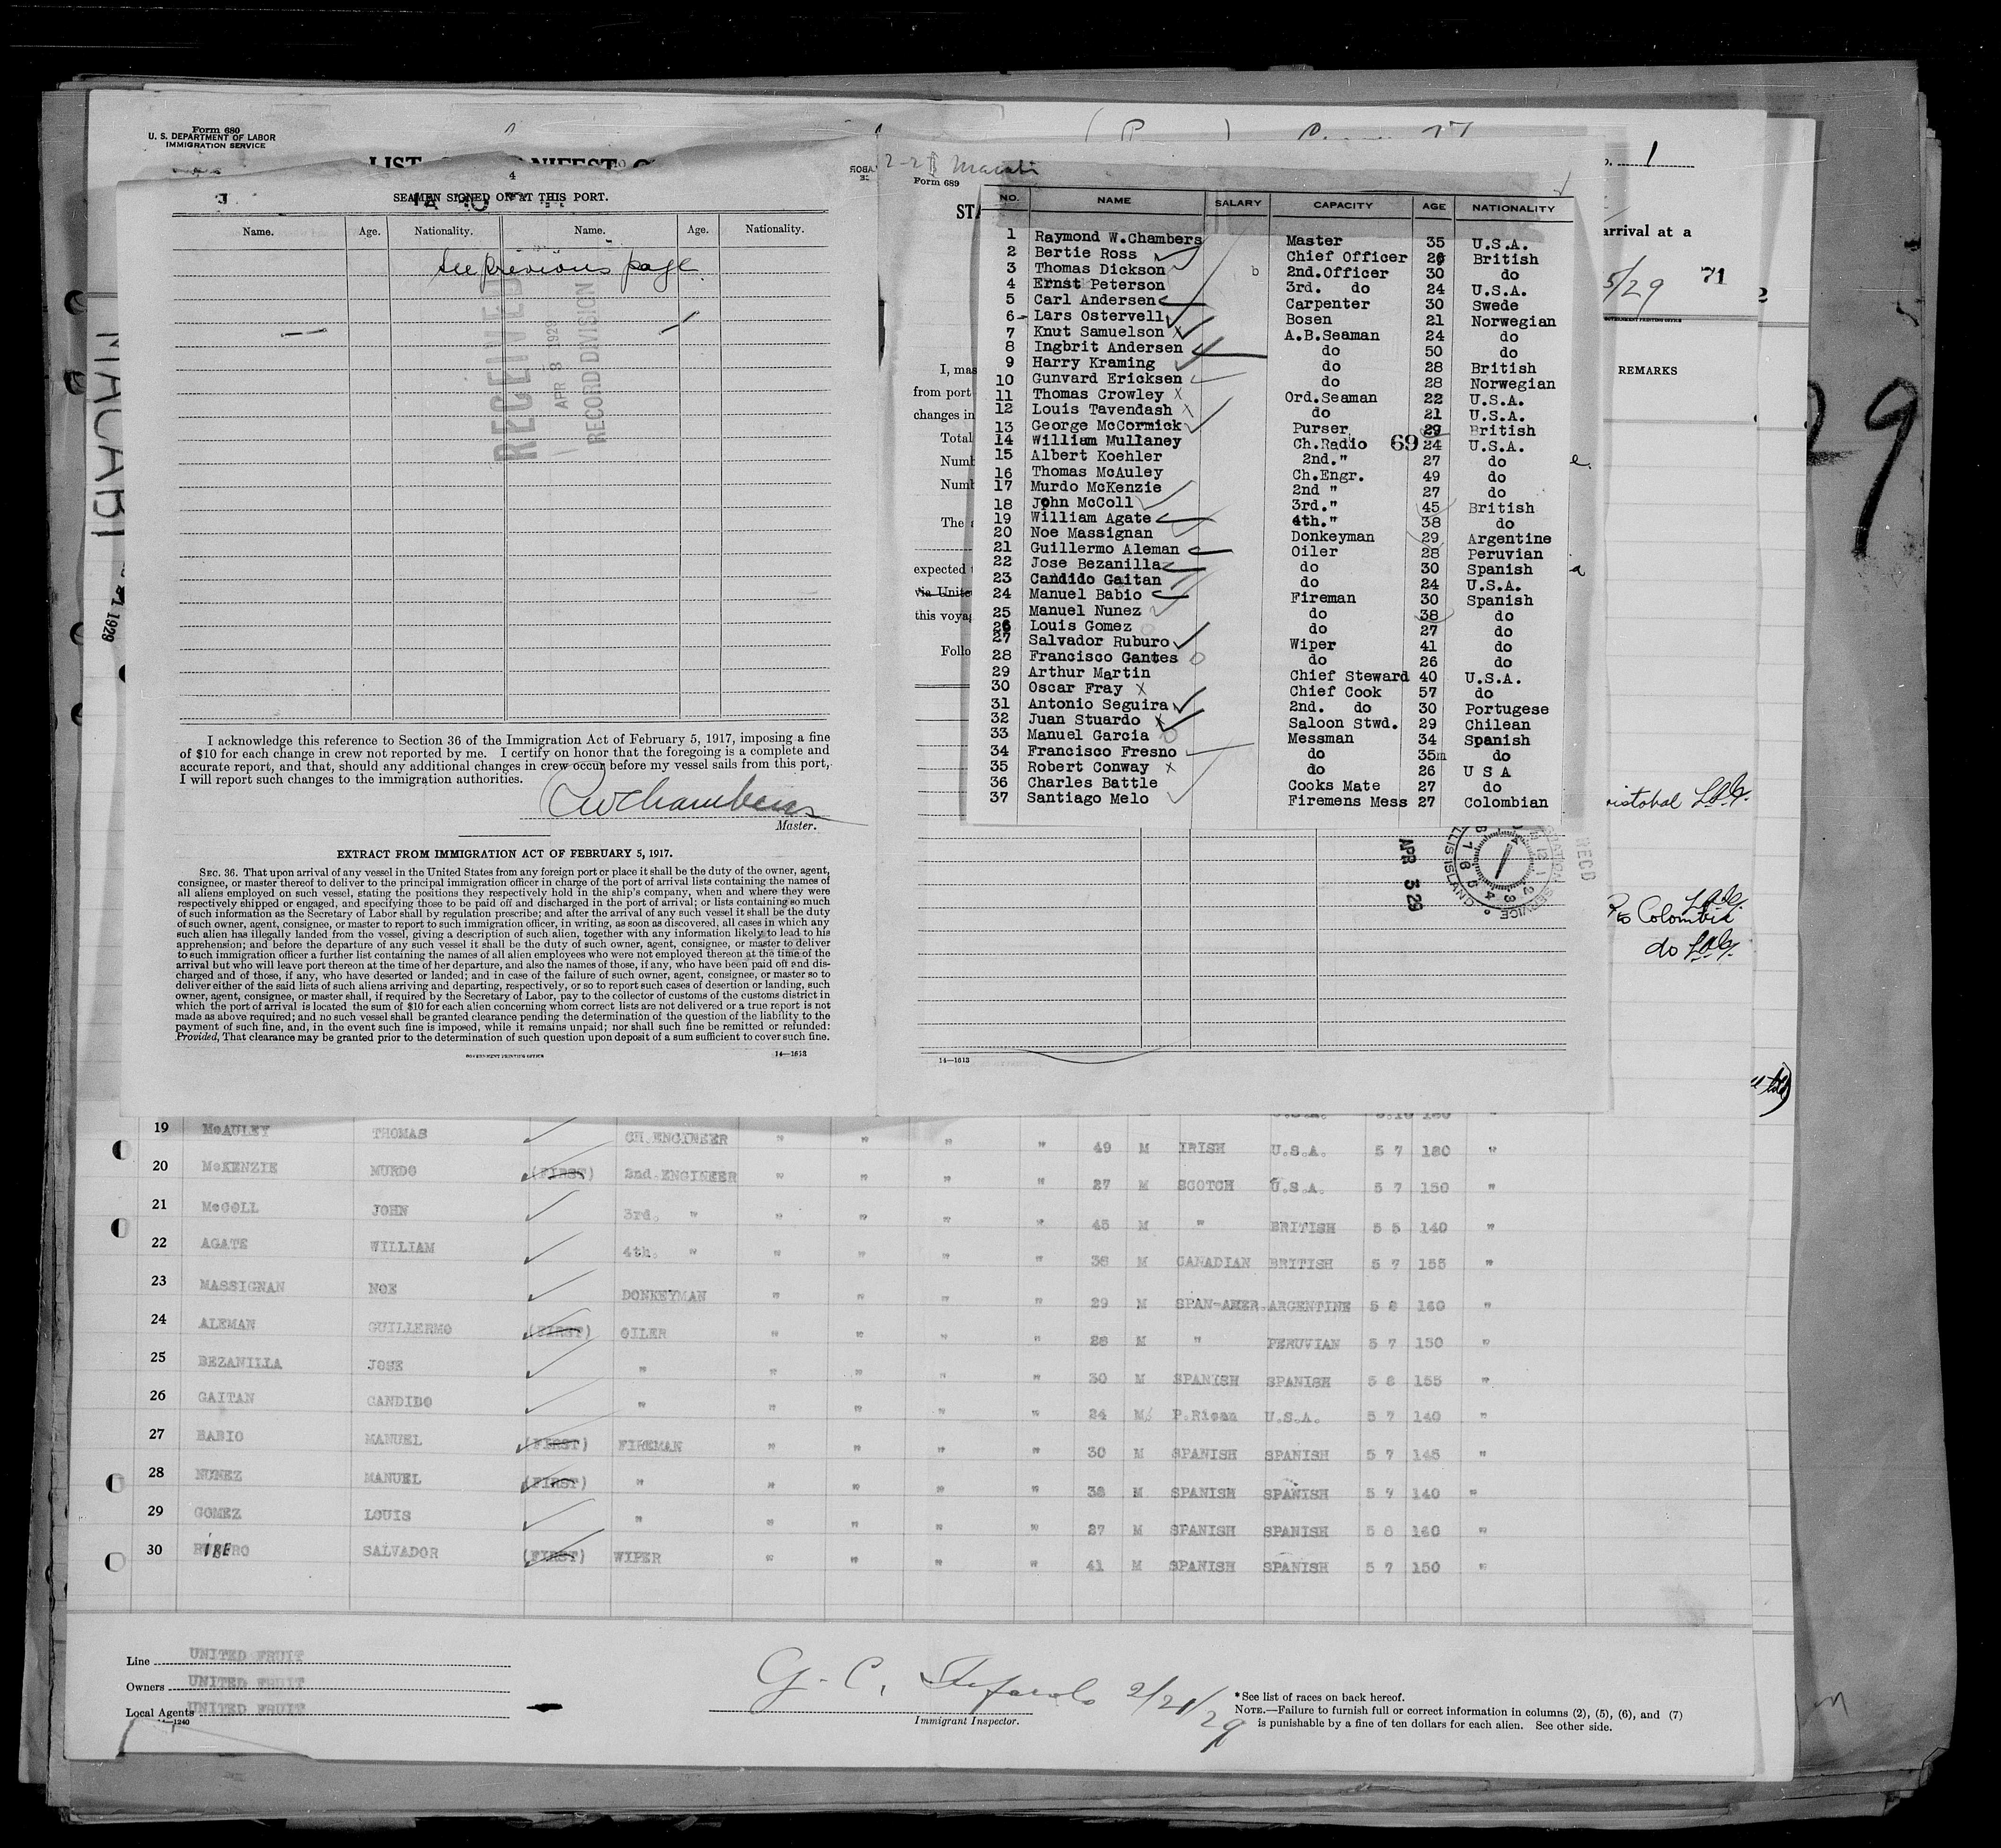 Form 680
U. S. DEPARTMENT OF LABOR
IMMIGRATION SERVICE
4
SEAMEN SIGNED ON AT THIS PORT.
Name. Age. Nationality. Name. Age. Nationality.
See previous page
RECEIVED
APR 3 1929
RECORD DIVISION
I acknowledge this reference to Section 36 of the Immigration Act of February 5, 1917, imposing a fine
of $10 for each change in crew not reported by me. I certify on honor that the foregoing is a complete and
accurate report, and that, should any additional changes in crew occur before my vessel sails from this port,
I will report such changes to the immigration authorities.
RWChambers
Master.
EXTRACT FROM IMMIGRATION ACT OF FEBRUARY 5, 1917.
SEC. 36. That upon arrival of any vessel in the United States from any foreign port or place it shall be the duty of the owner, agent,
consignee, or master thereof to deliver to the principal immigration officer in charge of the port of arrival lists containing the names of
all aliens employed on such vessel, stating the positions they respectively hold in the ship's company, when and where they were
respectively shipped or engaged, and specifying those to be paid off and discharged in the port of arrival; or lists containing so much
of such information as the Secretary of Labor shall by regulation prescribe; and after the arrival of any such vessel it shall be the duty
of such owner, agent, consignee, or master to report to such immigration officer, in writing, as soon as discovered, all cases in which any
such alien has illegally landed from the vessel, giving a description of such alien, together with any information likely to lead to his
apprehension; and before the departure of any such vessel it shall be the duty of such owner, agent, consignee, or master to deliver
to such immigration officer a further list containing the names of all alien employees who were not employed thereon at the time of the
arrival but who will leave port thereon at the time of her departure, and also the names of those, if any, who have been paid off and dis-
charged and of those, if any, who have deserted or landed; and in case of the failure of such owner, agent, consignee, or master so to
deliver either of the said lists of such aliens arriving and departing, respectively, or so to report such cases of desertion or landing, such
owner, agent, consignee, or master shall, if required by the Secretary of Labor, pay to the collector of customs of the customs district in
which the port of arrival is located the sum of $10 for each alien concerning whom correct lists are not delivered or a true report is not
made as above required; and no such vessel shall be granted clearance pending the determination of the question of the liability to the
payment of such fine, and, in the event such fine is imposed, while it remains unpaid; nor shall such fine be remitted or refunded:
Provided, That clearance may be granted prior to the determination of such question upon deposit of a sum sufficient to cover such fine.
GOVERNMENT PRINTING OFFICE 14—1613
MACABI
1929
Macabi
Form 689
STA
I, mas
from port
changes in
Total
Numb
Numb
The
expected
via Unite
this voya
Follo
NO. NAME SALARY CAPACITY AGE NATIONALITY
1 Raymond W.Chambers Master 35 U.S.A.
2 Bertie Ross Chief Officer 26 British
3 Thomas Dickson b 2nd.Officer 30 do
4 Ernst Peterson 3rd. do 24 U.S.A.
5 Carl Andersen Carpenter 30 Swede
6 Lars Ostervell Bosen 21 Norwegian
7 Knut Samuelson A.B.Seaman 24 do
8 Ingbrit Andersen do 50 do
9 Harry Kraming do 28 British
10 Gunvard Ericksen do 28 Norwegian
11 Thomas Crowley Ord.Seaman 22 U.S.A.
12 Louis Tavendash do 21 U.S.A.
13 George McCormick Purser 29 British
14 William Mullaney Ch.Radio 69 24 U.S.A.
15 Albert Koehler 2nd." 27 do
16 Thomas McAuley Ch.Engr. 49 do
17 Murdo McKenzie 2nd " 27 do
18 John McColl 3rd." 45 British
19 William Agate 4th." 38 do
20 Noe Massignan Donkeyman 29 Argentine
21 Guillermo Aleman Oiler 28 Peruvian
22 Jose Bezanilla do 30 Spanish
23 Candido Gaitan do 24 U.S.A.
24 Manuel Babio Fireman 30 Spanish
25 Manuel Nunez do 38 do
26 Louis Gomez do 27 do
27 Salvador Ruburo Wiper 41 do
28 Francisco Gantes do 26 do
29 Arthur Martin Chief Steward 40 U.S.A.
30 Oscar Fray Chief Cook 57 do
31 Antonio Seguira 2nd. do 30 Portugese
32 Juan Stuardo Saloon Stwd. 29 Chilean
33 Manuel Garcia Messman 34 Spanish
34 Francisco Fresno do 35m do
35 Robert Conway do 26 U S A
36 Charles Battle Cooks Mate 27 do
37 Santiago Melo Firemens Mess 27 Colombian
APR 3 29
RECD
14—1613
1
arrival at a
5/29 71
REMARKS
29
Colombia
do
19 McAULEY THOMAS CH.ENGINEER " " " " 49 M IRISH U.S.A. 5 7 180 "
20 McKENZIE MURDO (FIRST) 2nd.ENGINEER " " " 27 M SCOTCH U.S.A. 5 7 150 "
21 McCOLL JOHN 3rd. " " " " " 45 M " BRITISH 5 5 140 "
22 AGATE WILLIAM 4th. " " " " " 38 M CANADIAN BRITISH 5 7 155 "
23 MASSIGNAN NOE DONKEYMAN " " " " 29 M SPAN-AMER. ARGENTINE 5 8 160 "
24 ALEMAN GUILLERMO (FIRST) OILER " " " " 28 M " PERUVIAN 5 7 150 "
25 BEZANILLA JOSE " " " " " 30 M SPANISH SPANISH 5 8 155 "
26 GAITAN CANDIDO " " " " " 24 M P.Rican U.S.A. 5 7 140 "
27 BABIO MANUEL (FIRST) FIREMAN " " " " 30 M SPANISH SPANISH 5 7 145 "
28 NUNEZ MANUEL (FIRST) " " " " " 38 M SPANISH SPANISH 5 7 140 "
29 GOMEZ LOUIS " " " " " 27 M SPANISH SPANISH 5 8 160 "
30 SALVADOR (FIRST) WIPER " " " " 41 M SPANISH SPANISH 5 7 150 "
Line UNITED FRUIT
Owners UNITED FRUIT
Local Agents UNITED FRUIT
14—1240
G. C. 2/21/29
Immigrant Inspector.
*See list of races on back hereof.
NOTE.—Failure to furnish full or correct information in columns (2), (5), (6), and (7)
is punishable by a fine of ten dollars for each alien. See other side.